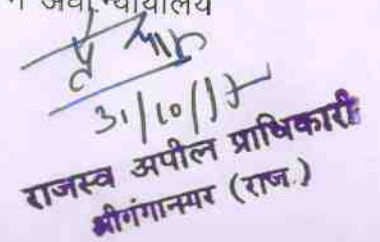 न्यायालय
31/10/17
राजस्व अपील प्राधिकारी
श्रीगंगानगर (राज.)